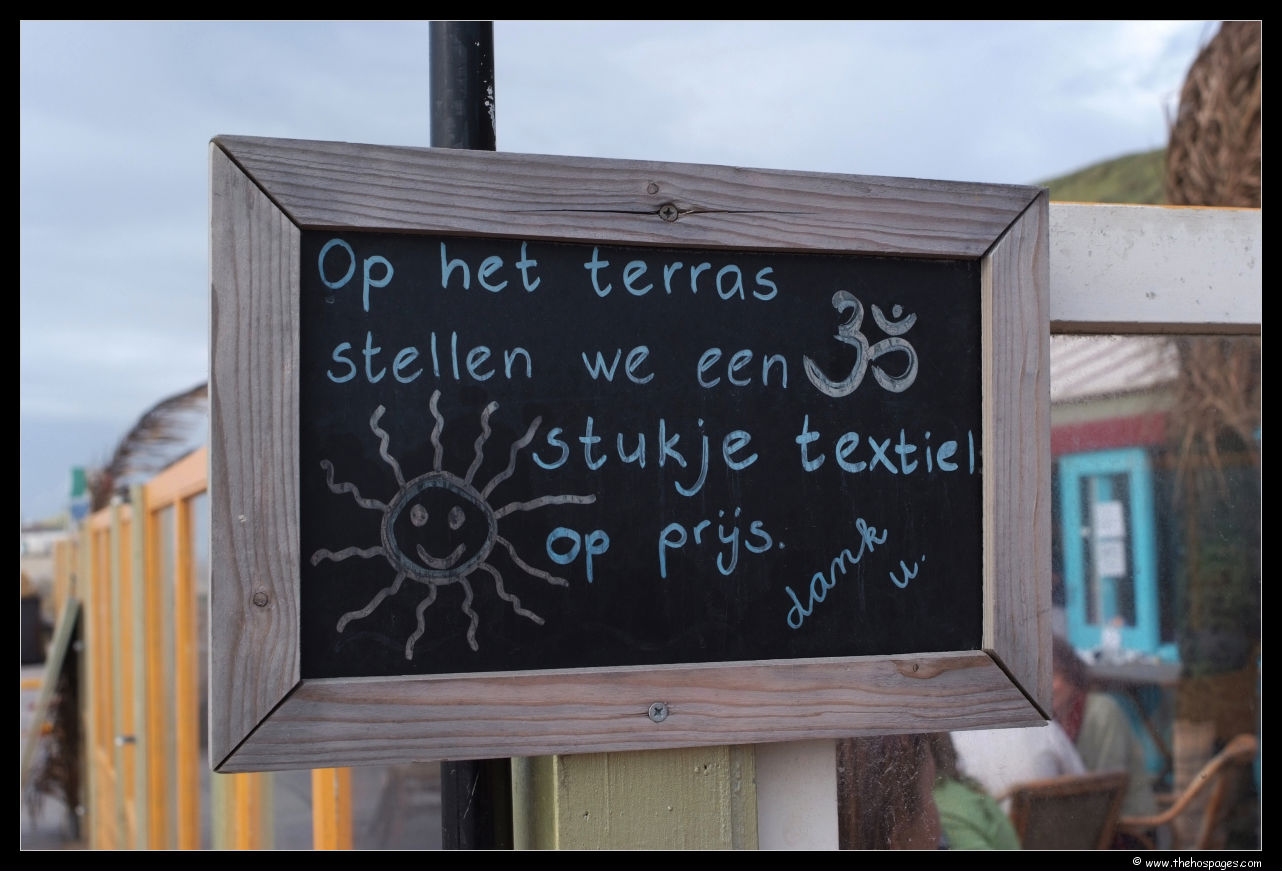 Op het terras
stellen we een ॐ
stukje textiel
op prijs.
dank
u.
© www.thehospages.com